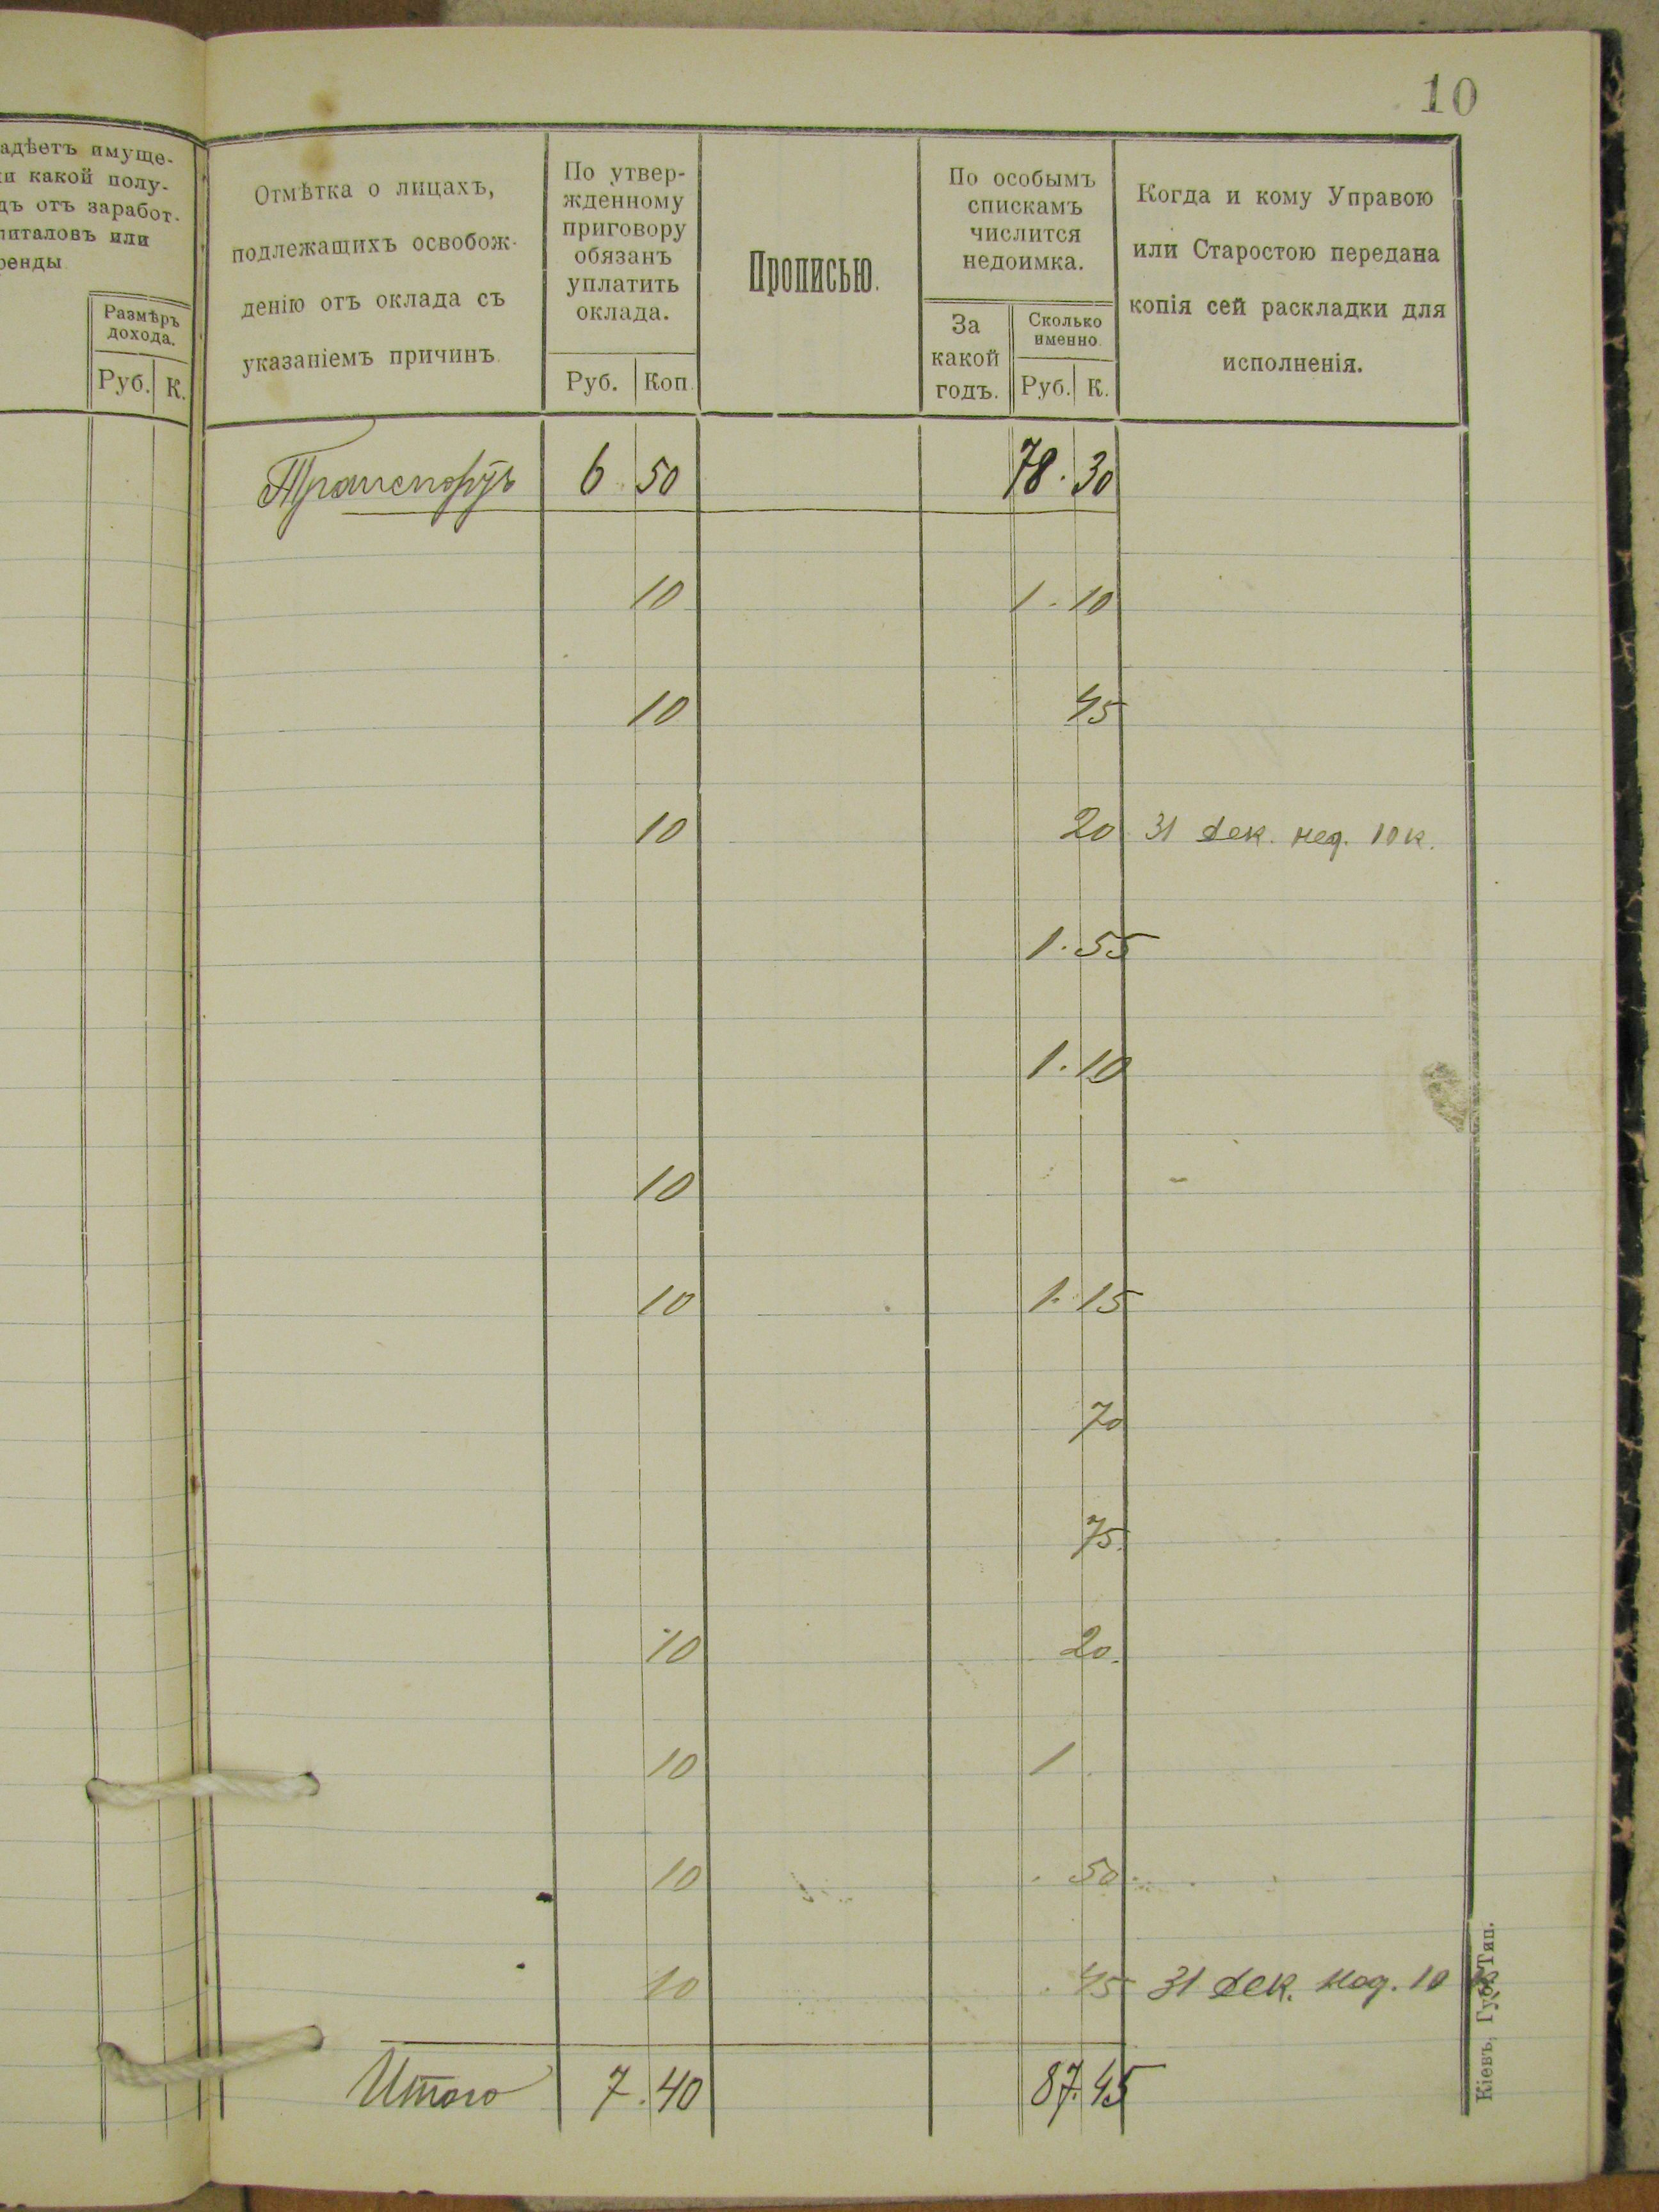 10
адѣетъ имуще-
ли какой полу-
дъ отъ заработ.
питаловъ или
ренды
Размѣръ
дохода.
Руб. К.
Отмѣтка о лицахъ,
подлежащихъ освобож-
денію отъ оклада съ
указаніемъ причинъ.
По утвер-
жденному
приговору
обязанъ
уплатить
оклада.
Руб. Коп.
Прописью.
По особымъ
спискамъ
числится
недоимка.
За
какой
годъ.
Сколько
именно.
Руб. К.
Когда и кому Управою
или Старостою передана
копія сей раскладки для
исполненія.
Транспортъ 6 50 78. 30
10 1. 10
10 45
10 20 31 дек. нед. 10 к.
1. 55
1. 10
10
10 1. 15
70
75.
10 20.
10 1
10 50
10 45 31 дек. нед. 10 к
Итого 7. 40 87. 45
Кіевъ, Губ. Тип.